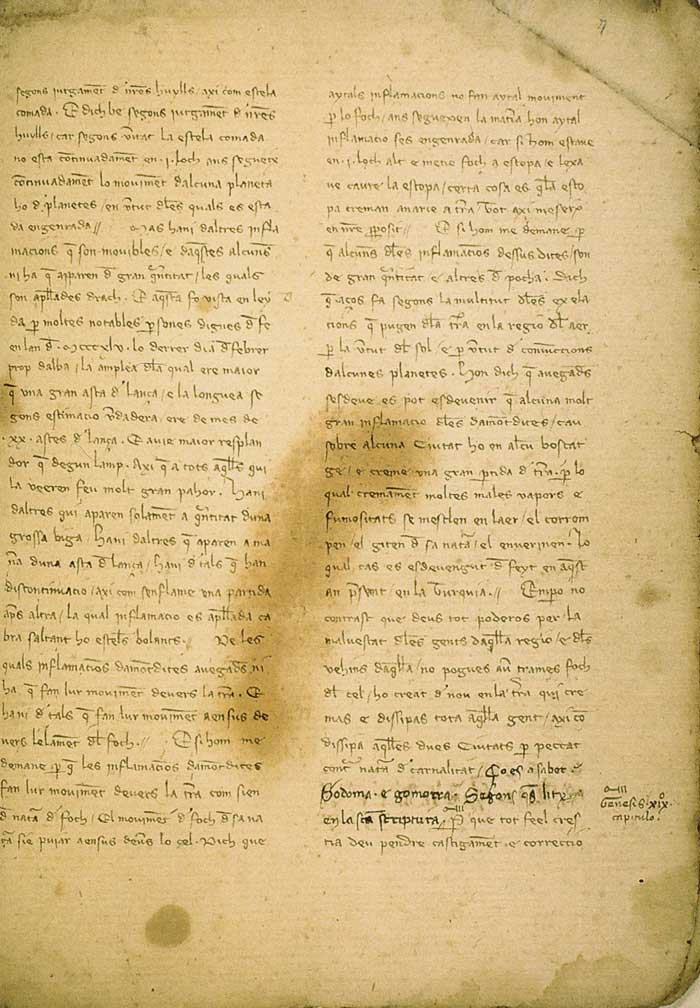 segons iutgamēt d n̄res huylls / axi com estela
comada . E dich be segons iutgamēt d n̄res
huylls / car segons v̄itat la estela comada
no esta cōtinuadamēt en . i . loch ans segueix
cōtinuadamēt lo movimēt dalcuna planeta
ho d planetes / en v̄tut dl̄es quals es esta
da engenrada // Mas hani daltres infla
macions q̄ son movibles / e daq̄stes alcunes
ni ha q̄ apparen d gran q̄ntitat / les quals
son apl̄lades drach . E aq̄sta fo vista en ley
da p̄ moltes notables p̄sones dignes d fe
en lan d . Mcccxlv . lo derrer dia d febrer
prop dalba / la amplea dl̄a qual ere maior
q̄ una gran asta d lança / e la longuea se
gons estimacio v̄dadera / ere de mes de
. xx . astes d lança . E avie maior resplan
dor q̄ degun lamp . Axi q̄ a tots aq̄lls qui
la veeren feu molt gran pahor . Hani
daltres qui aparen solamēt a q̄ntitat duna
grossa biga / Hani daltres q̄ aparen a ma
n̄a duna asta d lança / Hani d tals q̄ han
discontinuacio / axi com senflame una partida
ap̄s altra / la qual inflamacio es apl̄lada ca
bra saltant ho estels bolants . // De les
quals inflamaciōs damōtdites avegad̄s ni
ha q̄ fan lur movimēt devers la tr̄a . E
hani d tals q̄ fan lur movimēt aensus de
vers lelamēt dl̄ foch . // E si hom me
demane p̄ q̄ les inflamaciōs damōtdites
fan lur movimēt devers la tr̄a com sien
d natā d foch / El movimēt d foch d sa na
tā sie puiar aensus dev̄s lo cel . Dich que
aytals inflamacions no fan aytal moviment
p̄ lo foch / ans segueixen la mat̄ia hon aytal
inflamacio ses engenrada / car si hom estave
en . i . loch alt e metie foch a estopa e lexa
ve caure la estopa / certa cosa es q̄ la esto
pa creman anarie a tr̄a
en n̄re p̄posit // E si hom me demane p̄
q̄ alcun̄s dl̄es inflamaciōs dessus dites / son
de gran q̄ntitat e altres d pocha . Dich
q̄ aços fa segons la multitut dl̄es exela
cions q̄ pugen dl̄a tr̄a en la regio dl̄ aer
p̄ la v̄tut dl̄ sol / e p̄ v̄tut d coniunccions
dalcunes planetes . Hon dich q̄ avegad̄s
sesdeve es pot esdevenir q̄ alcuna molt
gran inflamacio dl̄es damōtdites / cau
sobre alcuna Ciutat ho en alcū boscat
ge / e creme una gran p̄tida d tr̄a . p̄ lo
qual cremamēt moltes males vapors e
fumositats se mesclen en laer / el corrom
pen / el giten d sa natā / el enverinen . Lo
qual cas es esdevengut d feyt en aq̄st
an p̄sent / en la Turquia . // Empo no
contrast que deus tot poderos per la
malvestat dl̄es gents daq̄lla regio / e dl̄s
vehins daq̄lla / no pogues av̄ trames foch
dl̄ cel / ho creat d nou en la tr̄a qui cre
mas e dissipas tota aq̄lla gent / axi cō
dissipa aq̄lles dues Ciutats p̄ peccat
cont̄ natā d carnalitat / Ço es a saber .
Sodoma . e gomorra . Segons q̄s litx
en la scā scriptura . P̄ que tot feel cres
tia deu pendre castigament e correccio
Genesis . xix°.
capitulo .